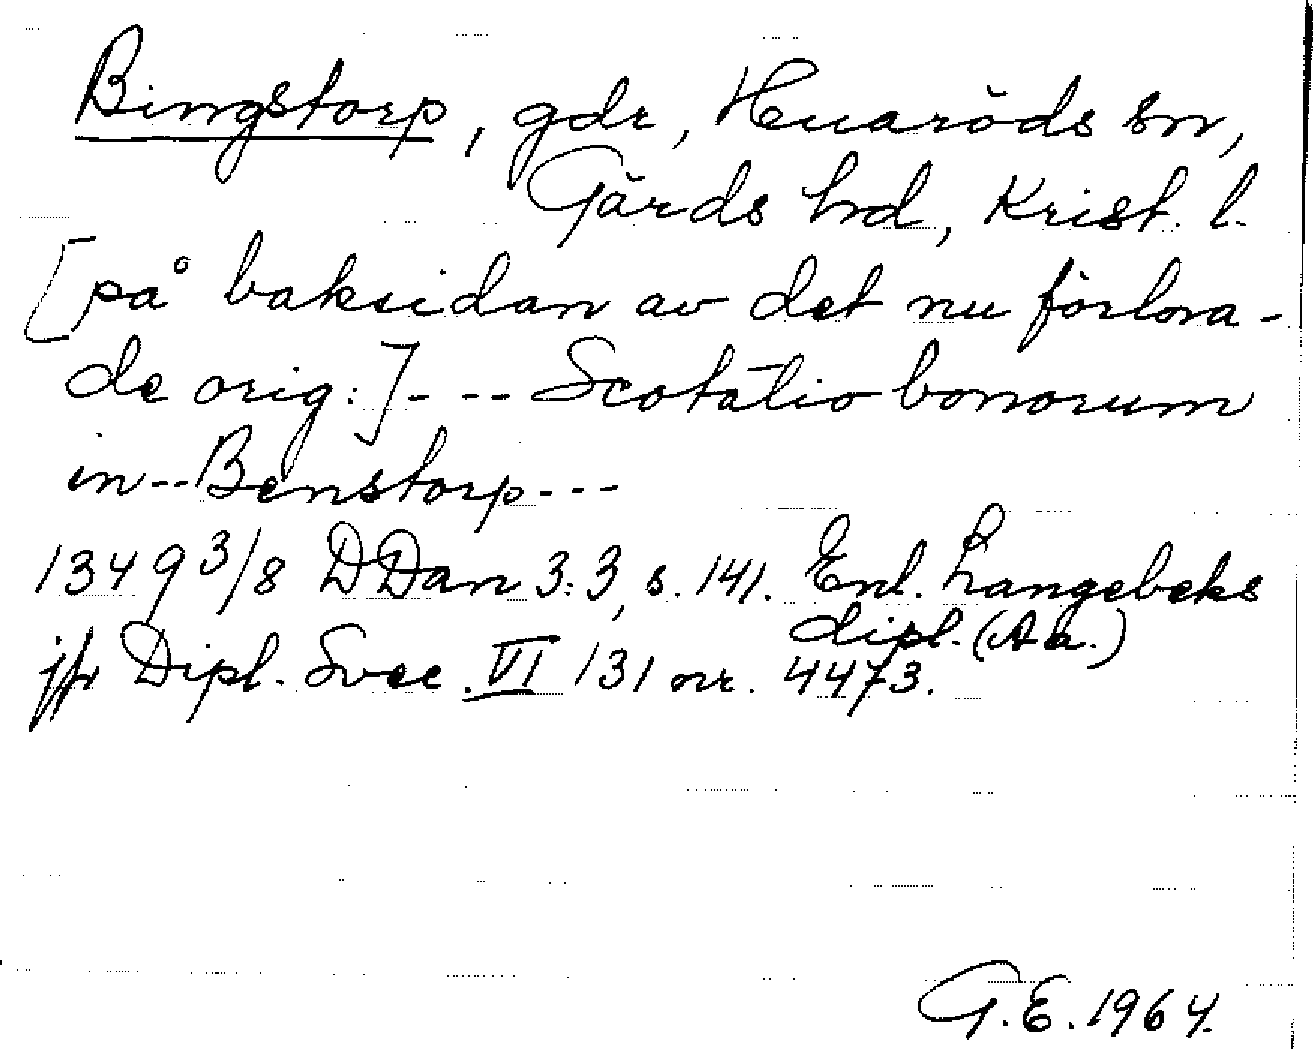 Bingstorp, gdr, Huaröds sn,
Gärds hd, Krist. l.
[på baksidan av det nu förlora-
de orig:]--- Scotatio bonorum
in--Benstorp---
1349 3/8 DDan 3:3, s. 141. Enl. Langebeks
dipl. (Aa.)
jfr Dipl. Svec. VI 131 nr. 4473.
G.E. 1964.